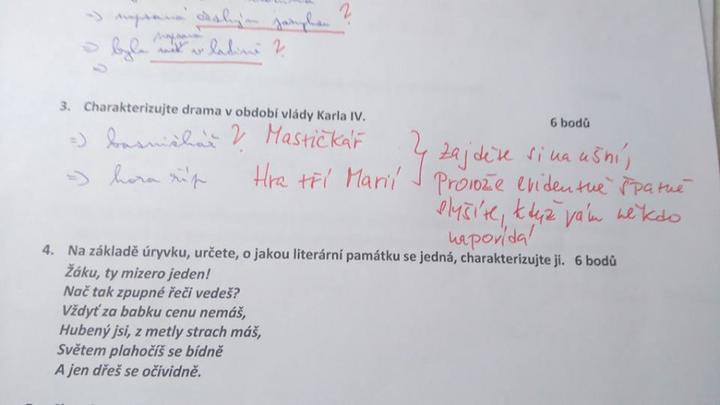 => napsaná českým jazykem ?
napsaná
=> byla v latině ?
=>
3. Charakterizujte drama v období vlády Karla IV.
6 bodů
=> basničkář ? Mastičkář
=> hora říp Hra tří Marií
zajděte si na ušní,
protože evidentně špatně
slyšíte, když vám někdo
napovídá!
4. Na základě úryvku, určete, o jakou literární památku se jedná, charakterizujte ji. 6 bodů
Žáku, ty mizero jeden!
Nač tak zpupné řeči vedeš?
Vždyť za babku cenu nemáš,
Hubený jsi, z metly strach máš,
Světem plahočíš se bídně
A jen dřeš se očividně.